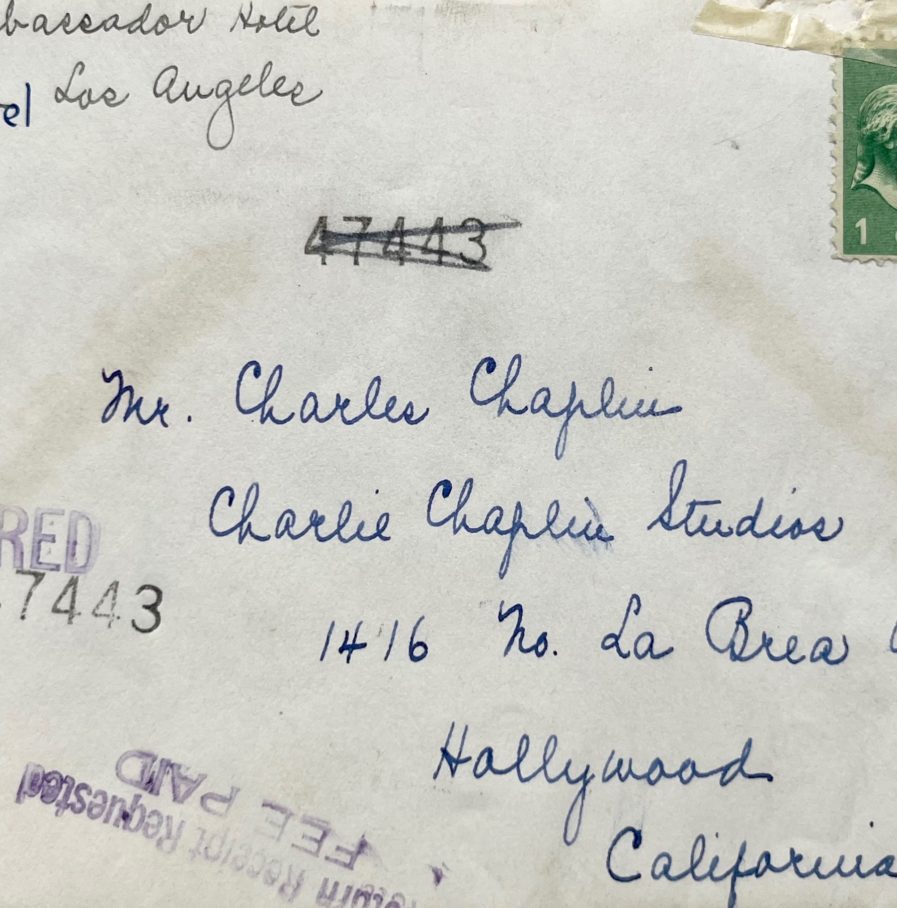 bassador Hotel
el Los Angeles
47443
1
Mr. Charles Chaplin
Charlie Chaplin Studios
RED
7443
1416 No. La Brea
Hollywood
California
Return Receipt Requested
FEE PAID